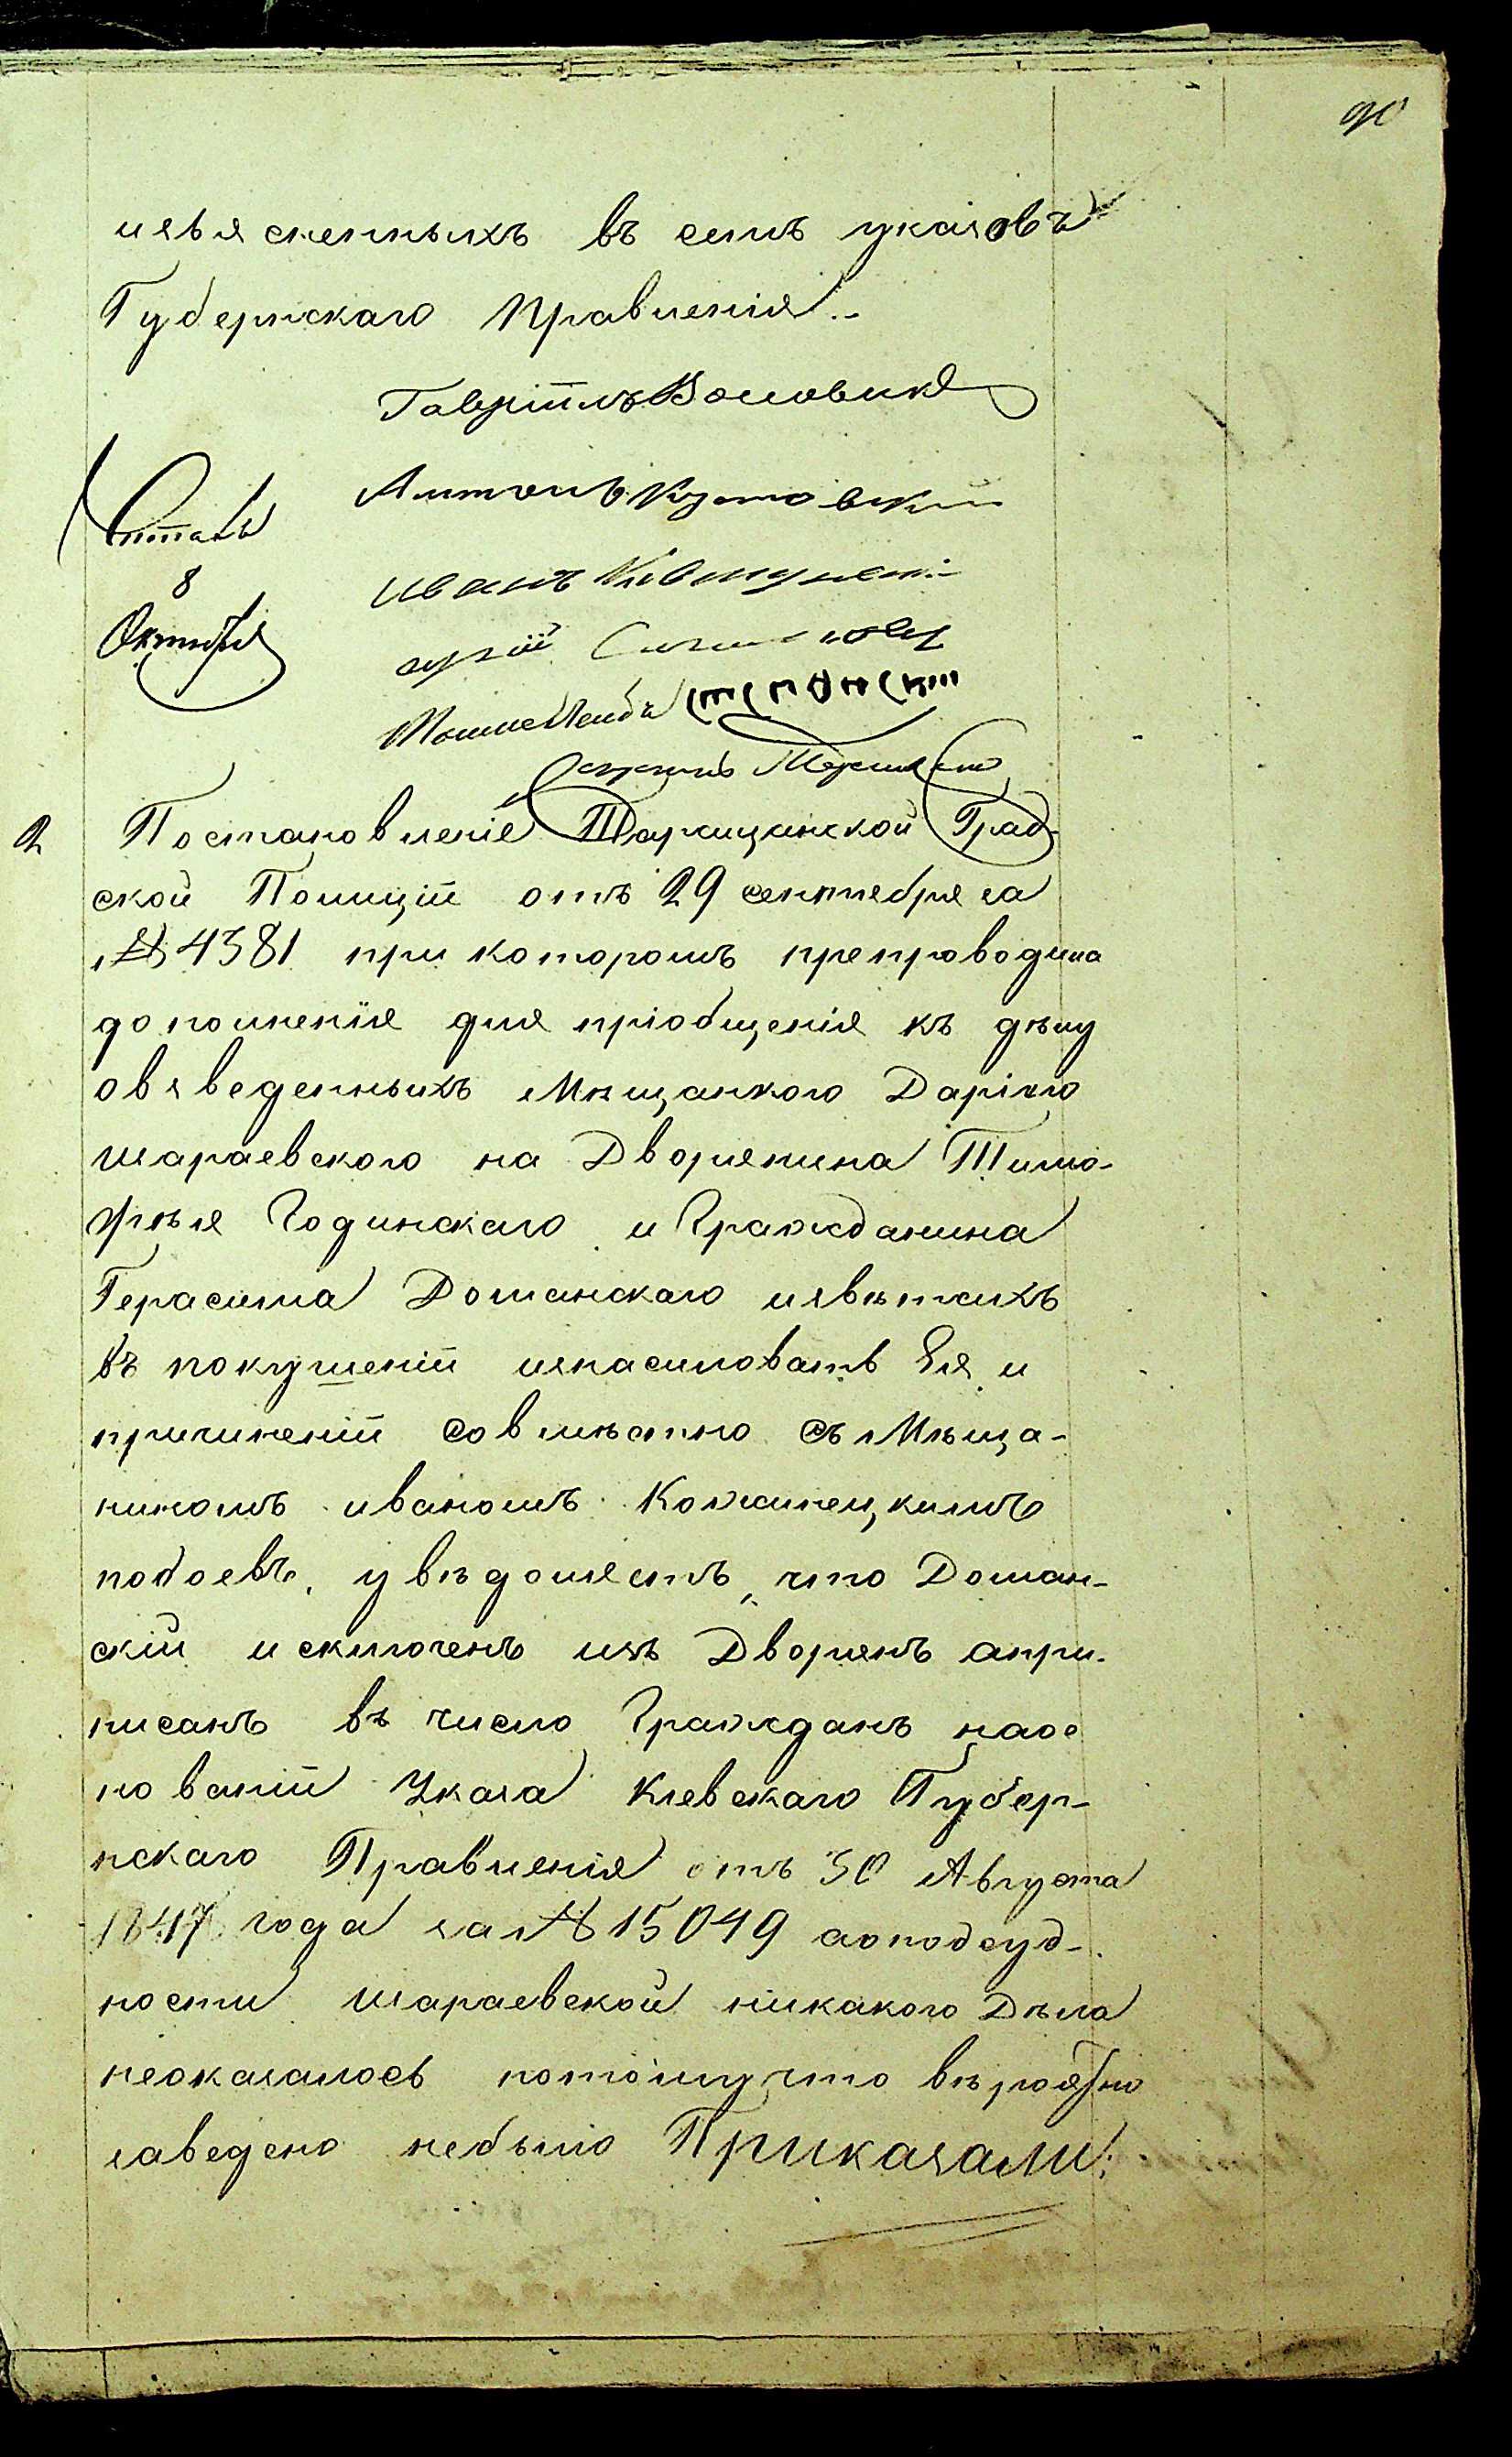 90
изъясненныхъ въ семъ указовъ
Губернскаго Правленія.
Гавріилъ Воловик
Антонъ
Читалъ
8
Иванъ
Октября
Мошко Лейбъ
2 Постановленіе Таращанской Град-
ской Полиціи отъ 29 сентября за
№ 4381 при которомъ препроводила
дополненія для пріобщенія къ дѣлу
овзведенныхъ Мѣщанкою Даріею
Шараевскою на Дворянина Тимо-
фѣя Годинскаго и Гражданина
Герасима Доманскаго извѣтахъ
въ покушеніи изнасиловать Ея и
причиненіи совмѣстно съ Мѣща-
ниномъ Иваномъ Кожанецкимъ
побоевъ, увѣдомляетъ, что Доман-
скій исключенъ изъ Дворянъ апри-
писанъ въ число Гражданъ наос
нованіи Указа Кіевскаго Губер-
нскаго Правленія отъ 30 Августа
1847 года за № 15049 аоподсуд-
ности Шараевской никакого Дѣла
неоказалось потому, что вѣроятно
заведено небыло Приказали: